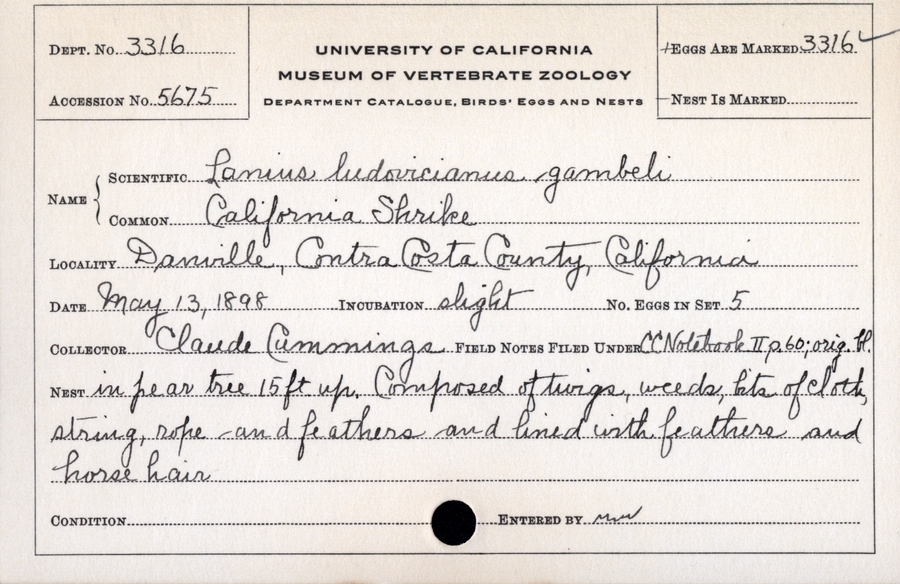 DEPT. No. 3316
UNIVERSITY OF CALIFORNIA
EGGS ARE MARKED 3316
MUSEUM OF VERTEBRATE ZOOLOGY
ACCESSION No. 5675
DEPARTMENT CATALOGUE, BIRDS' EGGS AND NESTS
NEST IS MARKED
NAME
SCIENTIFIC Lanius ludovicianus gambeli
COMMON California Shrike
LOCALITY Danville, Contra Costa County, California
DATE May 13, 1898 INCUBATION slight No. EGGS IN SET 5
COLLECTOR Claude Cummings FIELD NOTES FILED UNDER CC Notebook II p.60; orig. bl.
NEST in pear tree 15 ft up. Composed of twigs, weeds, bits of cloth,
string, rope and feathers and lined with feathers and
horse hair
CONDITION ENTERED BY